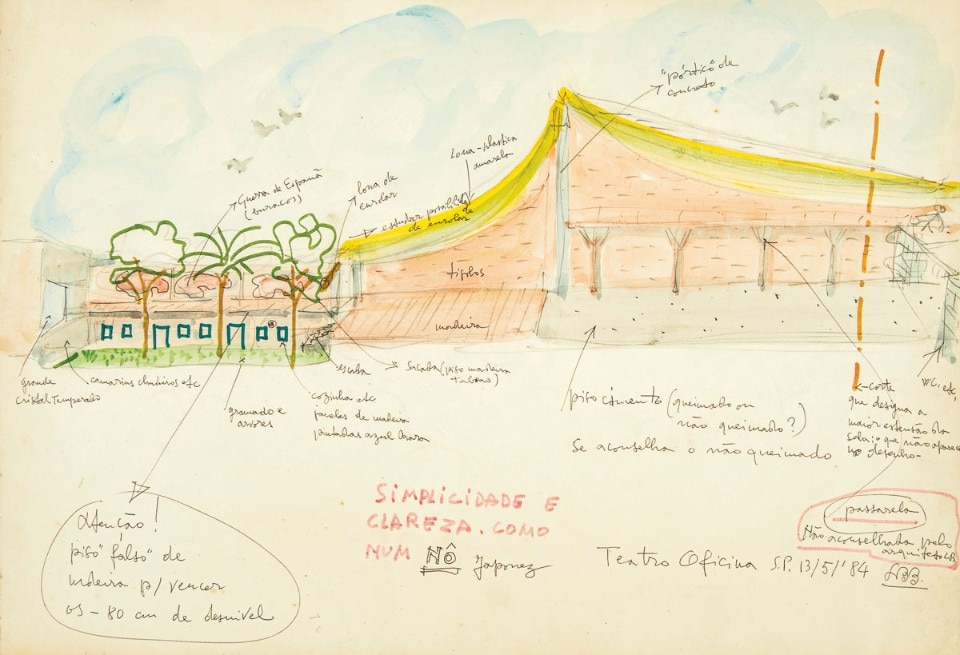 "pórtico" de
concreto
Lona-plastica
amarela
Guerra de España
(buracos)
lona de
enrolar
estudar possibilid.
de enrolar
tijolos
madeira
grande
cristal temperado
camarins chuveiros etc
gramado e
arvores
escada
Sacada (piso madeira
cozinha etc
janelas de madeira
pintadas azul
piso cimento (queimado ou
não queimado?)
Se aconselha o não queimado
W.C. etc.
corte
que designa a
maior extensão da
sala: o que não aparece
no desenho-
Atenção!
piso "falso" de
madeira p/ vencer
os - 80 cm de desnivel
SIMPLICIDADE E
CLAREZA. COMO
NUM NÔ Japonez
passarela
Não aconselhada pelo
arquiteto LB
Teatro Oficina S.P. 13/5/'84
LBB.